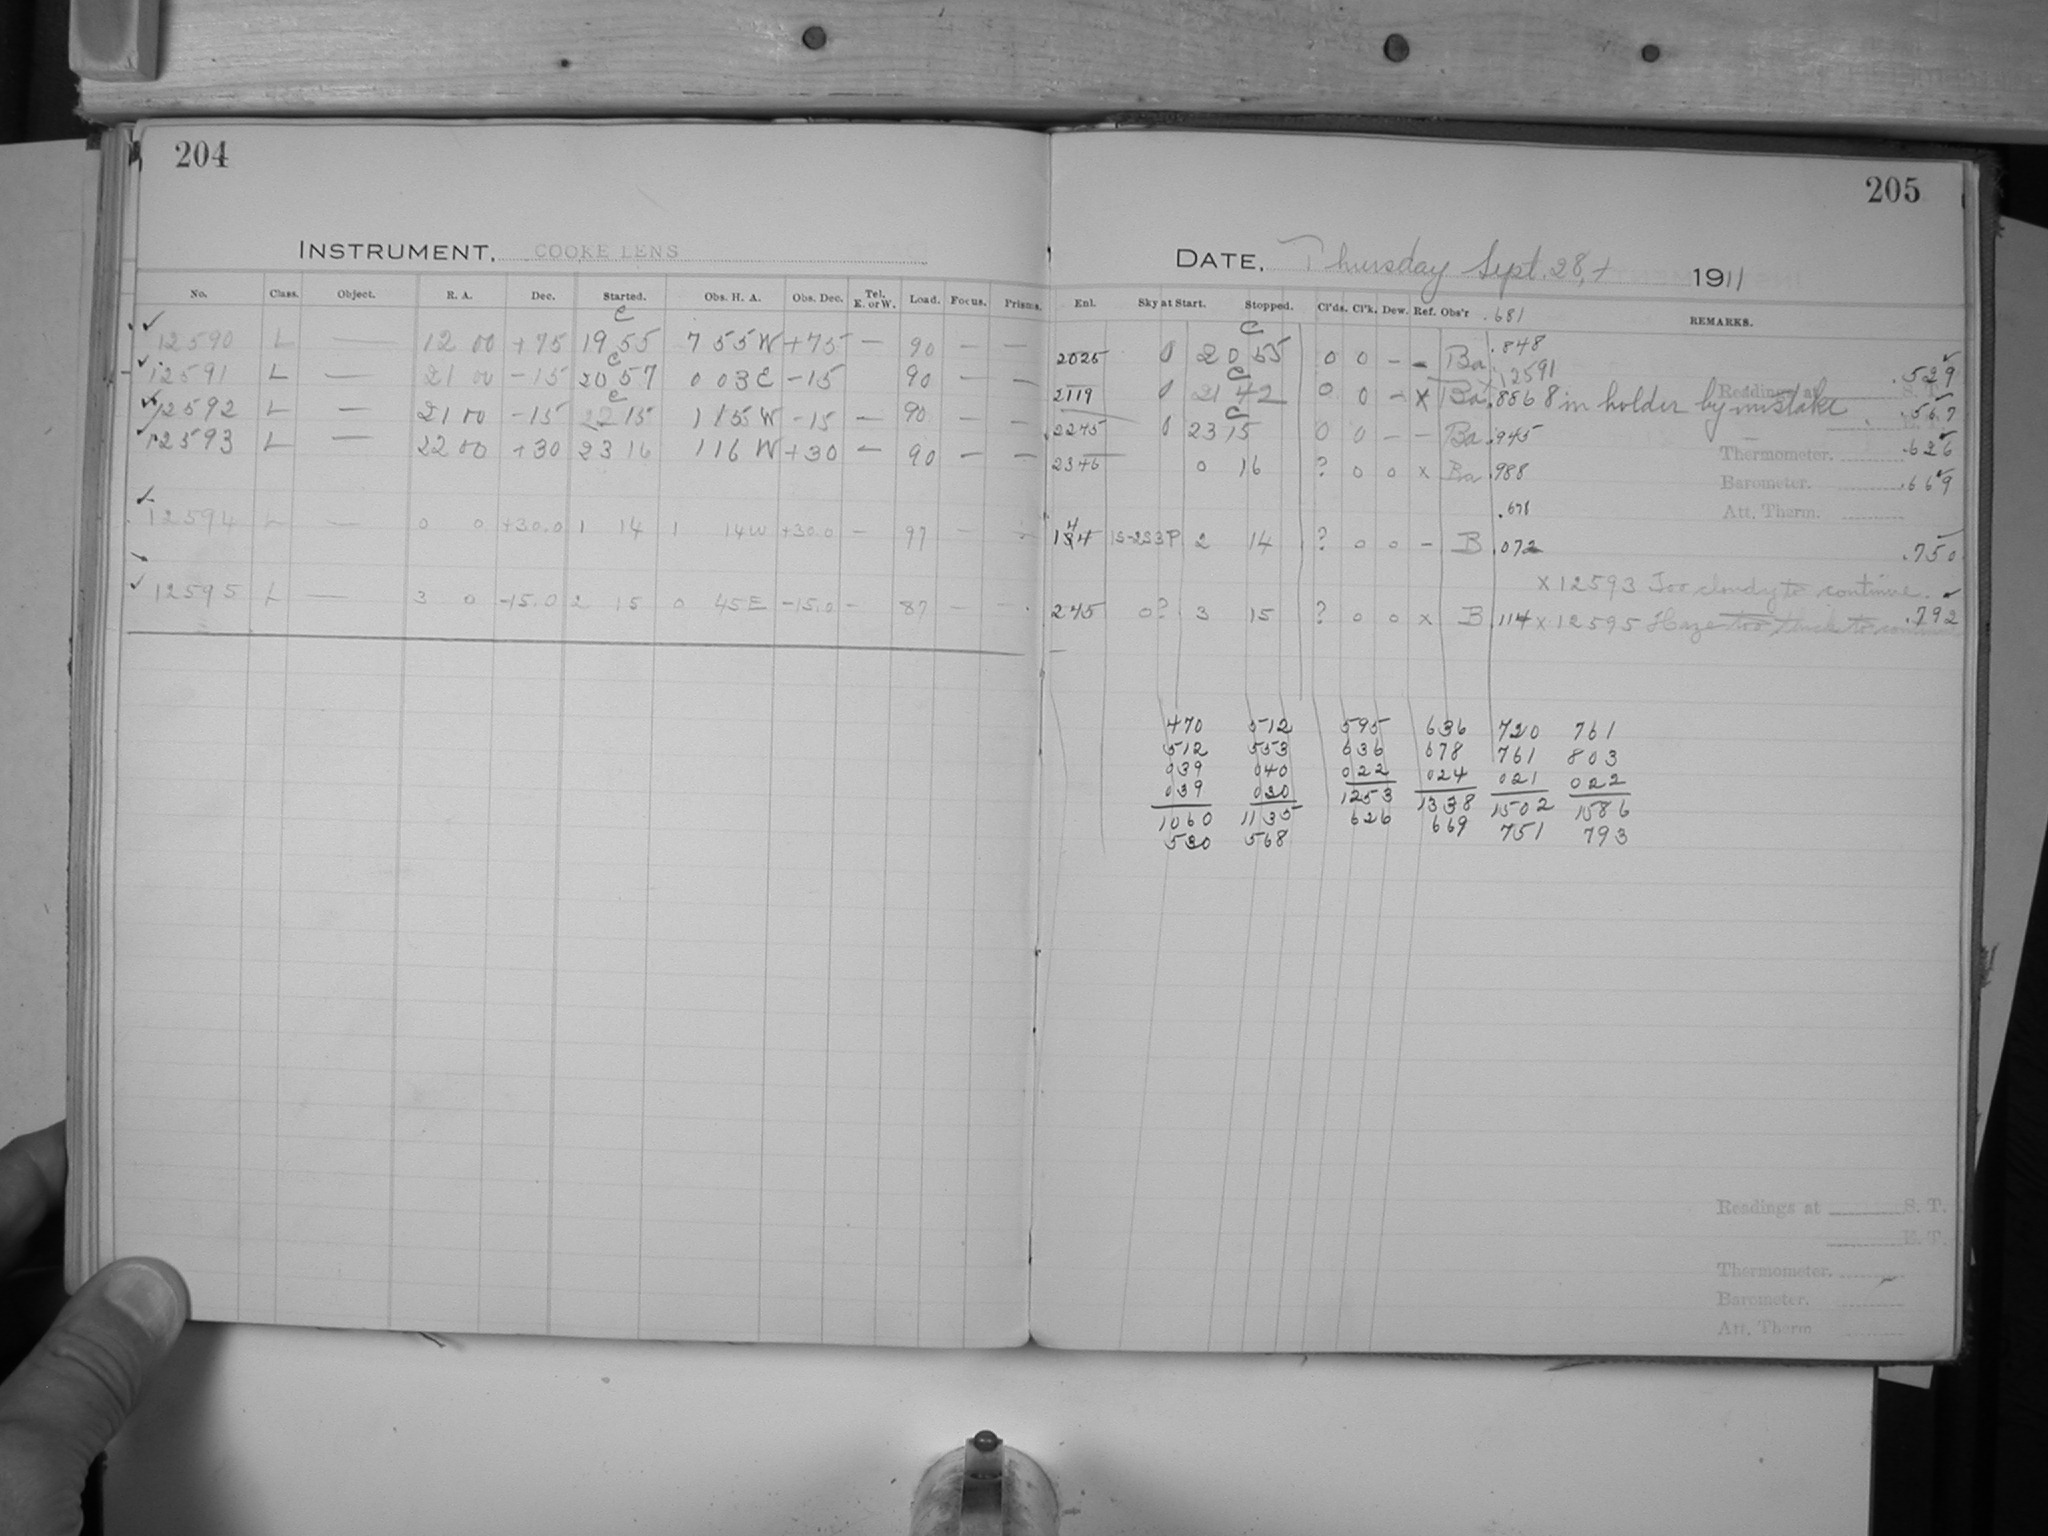 204
205
INSTRUMENT, COOKE LENS
DATE, Thursday Sept. 28, + 1911
No. Class. Object. R. A. Dec. Started. Obs. H. A. Obs. Dec. Tel. E. or W. Load. Focus. Prisms. Enl. Sky at Start. Stopped. Cl'ds. Cl'k. Dew. Ref. Obs'r .681 REMARKS.
✓ 12590 L — 12 00 +75 19 55 c 7 55 W +75 — 90 — — 2025 0 20 55 c 0 0 – – Ba .848 .529
✓ 12591 L — 21 00 –15 20 57 c 0 03 E –15 90 — — 2119 0 21 42 c 0 0 – x Ba .886 x 12591 8 in holder by mistake .567
✓ 12592 L — 21 00 –15 22 15 c 1 15 W –15 — 90 — — 2245 0 23 15 c 0 0 – – Ba .945 .626
✓ 12593 L — 22 00 +30 23 16 1 16 W +30 — 90 — — 2346 0 16 ? 0 0 x Ba .988 .669
.678
✓ 12594 L — 0 0 +30.0 1 14 1 14 W +30.0 — 97 — — 144 2 14 ? 0 0 – B .072 .750
x 12593 Too cloudy to continue.
✓ 12595 L — 3 0 –15.0 2 15 0 45 E –15.0 – 87 – – 245 0? 3 15 ? 0 0 x B .114 x 12595 Haze too thick to continue .792
Readings at S. T.
Thermometer.
Barometer.
Att. Therm.
470 512 595 636 720 761
512 553 636 678 761 803
039 040 022 024 021 022
039 030 1253 1338 1502 1586
1060 1135 626 669 751 793
530 568
Readings at S. T.
E. T.
Thermometer.
Barometer.
Att. Therm